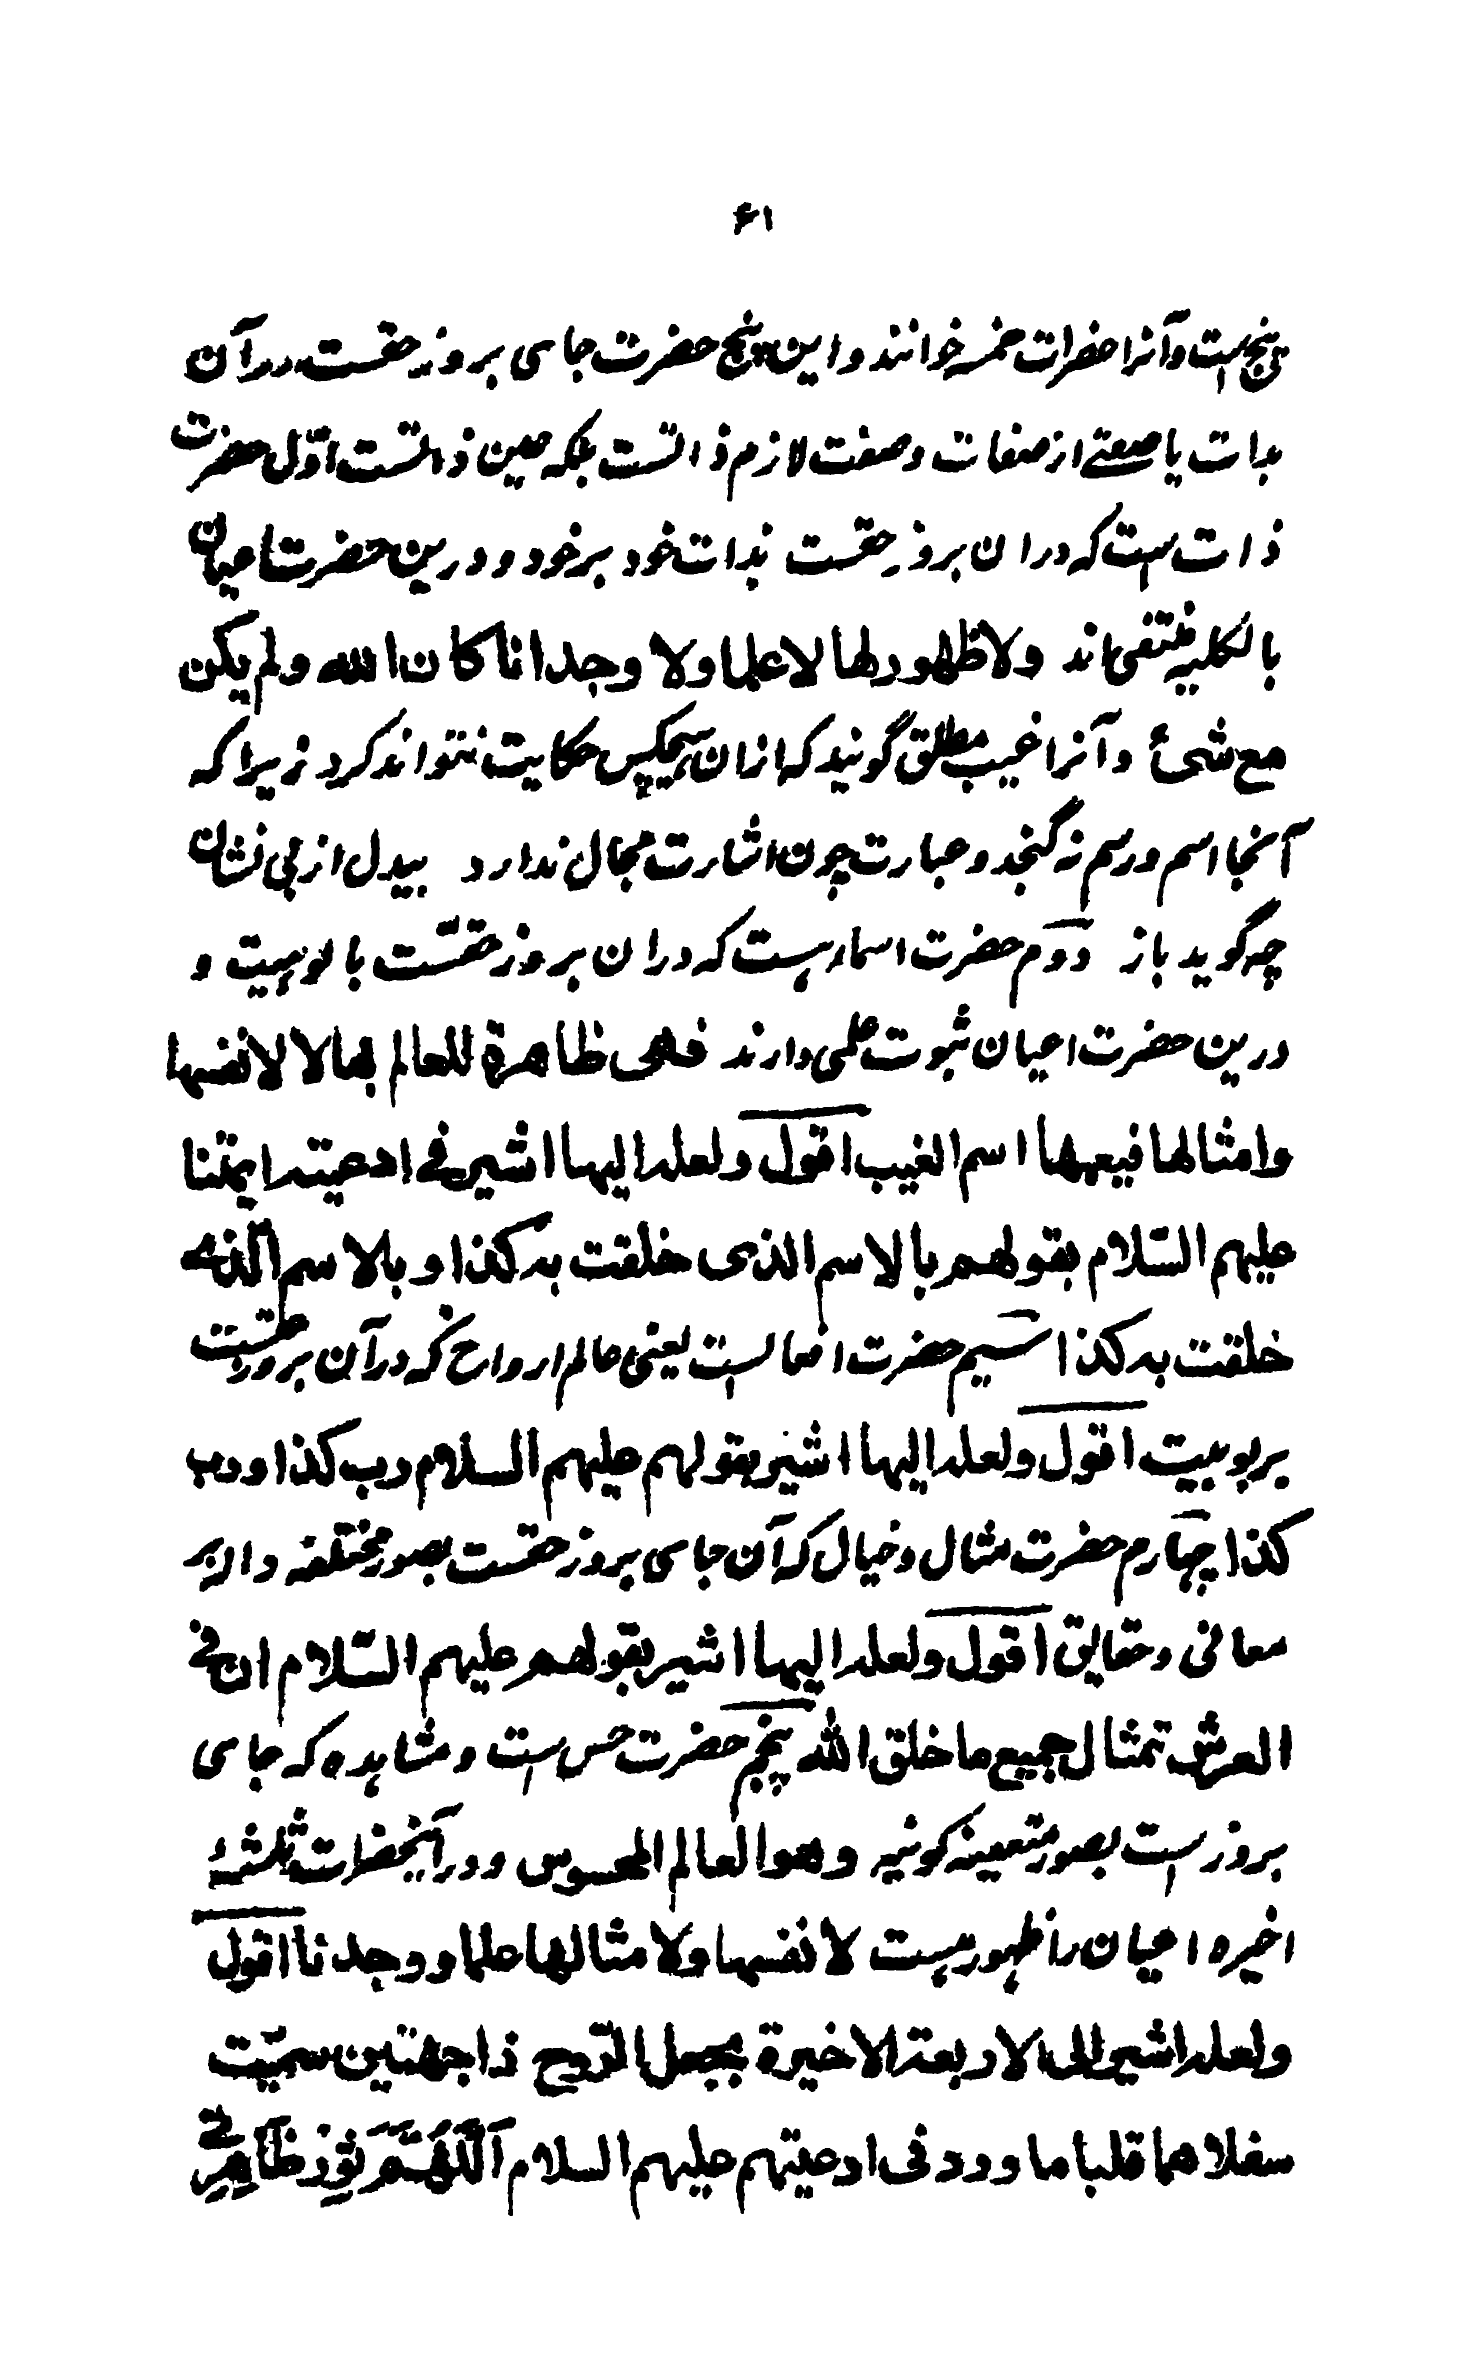 ۶۱
پنج است و آنرا حضرات خمسه خوانند و این پنج حضرت جای بروز حقست در آن
بذات یا صفتی از صفات و صفت لازم ذاتست بلکه عین ذاتست اوّل حضرت
ذات ست که در ان بروز حقست بذات خود بر خود و درین حضرت اعیان
بالکلیه منتفی اند ولا ظهور لها لا علما ولا وجدانا کان الله ولم یکن
مع شیٔ و آنرا غیب مطلق گویند که ازان هیچکس حکایت نتواند کرد زیرا که
آنجا اسم و رسم نه گنجد و عبارت چون اشارت مجال ندارد بیدل از بی نشان
چه گوید باز دوم حضرت اسماء هست که در ان بروز حقست بالوهیت و
درین حضرت اعیان ثبوت علمی دارند فهی ظاهرة للعالم بها لا لانفسها
وامثالها فیعمها اسم الغیب اقول ولعله الیها اشیر فی ادعیته ایمتنا
علیهم السّلام بقولهم بالاسم الذی خلقت به کذا و بالاسم الّذی
خلقت به کذا سیم حضرت افعالست یعنی عالم ارواح که در آن بروز حقست
بربوبیت اقول ولعله الیها اشیر بقولهم علیهم السلام رب کذا و رب
کذا چهارم حضرت مثال و خیال که آن جای بروز حقست بصور مختلفه دال بر
معانی و حقایق اقول ولعله الیها اشیر بقولهم علیهم السّلام ان فی
العرش تمثال جمیع ما خلق الله پنجم حضرت حس ست و مشاهده که جای
بروز ست بصور متعینه کونیه وهو العالم المحسوس و در آنحضرات ثلثهٔ
اخیره اعیان را ظهور هست لانفسها ولا مثالها علما و وجدنا اقول
ولعله اشیر الی الاربعة الاخیرة بجعل الرّوح ذا جهتین سمیّت
سفلاهما قلبا ما ورد فی ادعیتهم علیهم السلام اَللّهُمَّ نَوِّر ظَاهِرِی